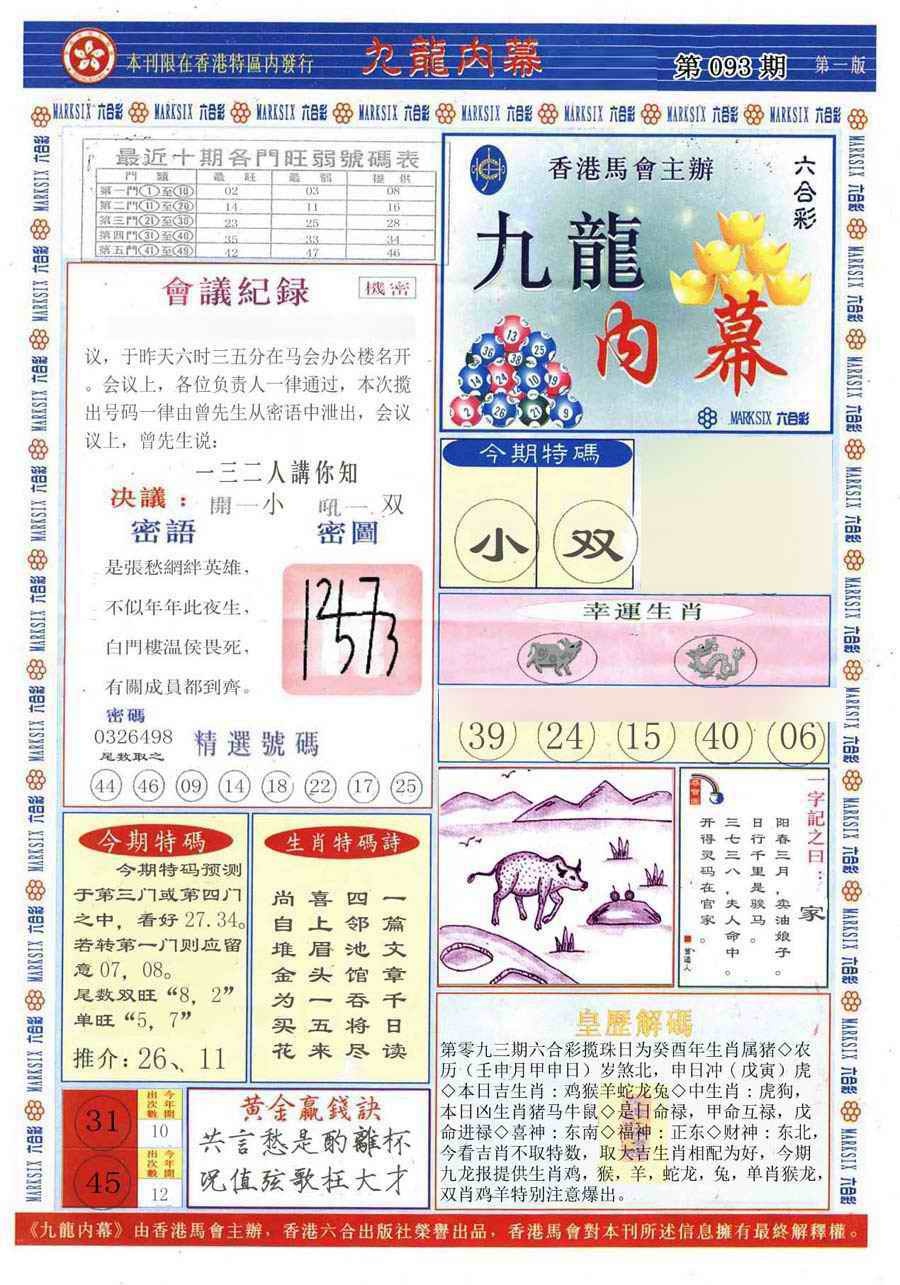 本刊限在香港特區内發行
九龍内幕
第 093 期
第一版
MARKSIX 六合彩 MARKSIX 六合彩 MARKSIX 六合彩 MARKSIX 六合彩 MARKSIX 六合彩 MARKSIX 六合彩 MARKSIX 六合彩 MARKSIX 六合彩
最近十期各門旺弱號碼表
門 類 最 旺 最 弱 提 供
第一門①至⑩ 02 03 08
第二門⑪至⑳ 14 11 16
第三門㉑至㉚ 23 25 28
第四門㉛至㊵ 35 33 34
第五門㊶至㊾ 42 47 46
香港馬會主辦
六合彩
九龍
内幕
13
36 38 25
14 24 10 19
2 26 21 9
MARKSIX 六合彩
會議紀録
機密
议，于昨天六时三五分在马会办公楼名开
。会议上，各位负责人一律通过，本次揽
出号码一律由曾先生从密语中泄出，会议
议上，曾先生说：
一三二人講你知
决議： 開一小 吼一 双
密語 密圖
是張愁網絆英雄，
不似年年此夜生，
白門樓温侯畏死，
有關成員都到齊。
密碼
0326498
尾数取之
精選號碼
44 46 09 14 18 22 17 25
今期特碼
小 双
幸運生肖
39 24 15 40 06
今期特碼
今期特码预测
于第三门或第四门
之中，看好 27.34。
若转第一门则应留
意 07，08。
尾数双旺“8，2”
单旺“5，7”
推介：26、11
生肖特碼詩
一篇文章千日读
四邻池馆吞将尽
喜上眉头一五来
尚自堆金为买花
一字記之曰：
家
阳春三月，卖油娘子。
日行千里是骏马。
三七三八，夫人命中。
开得灵码在官家。
曾道人
31
今年開
出次數
10
45
今年開
出次數
12
黄金贏錢訣
共言愁是酌離杯
况值弦歌枉大才
皇歷解碼
第零九三期六合彩揽珠日为癸酉年生肖属猪◇农
历（壬申月甲申日）岁煞北，申日冲（戊寅）虎
◇本日吉生肖：鸡猴羊蛇龙兔◇中生肖：虎狗，
本日凶生肖猪马牛鼠◇是日命禄，甲命互禄，戊
命进禄◇喜神：东南◇福神：正东◇财神：东北，
今看吉肖不取特数，取大吉生肖相配为好，今期
九龙报提供生肖鸡，猴，羊，蛇龙，兔，单肖猴龙，
双肖鸡羊特别注意爆出。
《九龍内幕》由香港馬會主辦，香港六合出版社榮譽出品，香港馬會對本刊所述信息擁有最終解釋權。